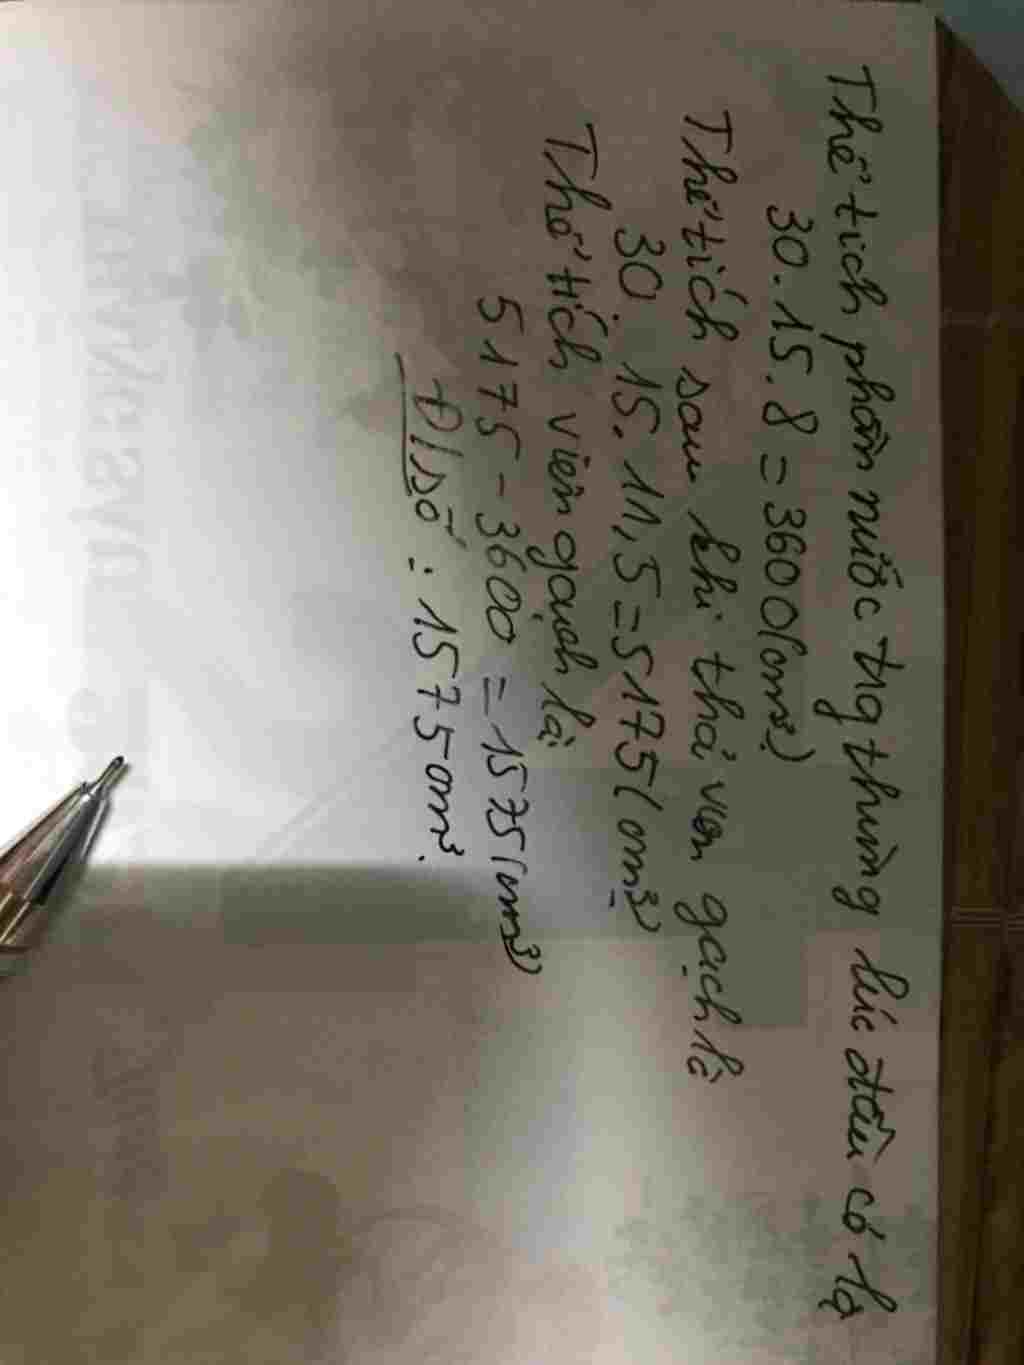 Thể tích phần nước trg thùng lúc đầu có là
30.15.8=3600(cm³)
Thể tích sau khi thả viên gạch là
30.15.11,5=5175(cm³)
Thể tích viên gạch là:
5175-3600=1575(cm³)
Đ/số: 1575cm³.